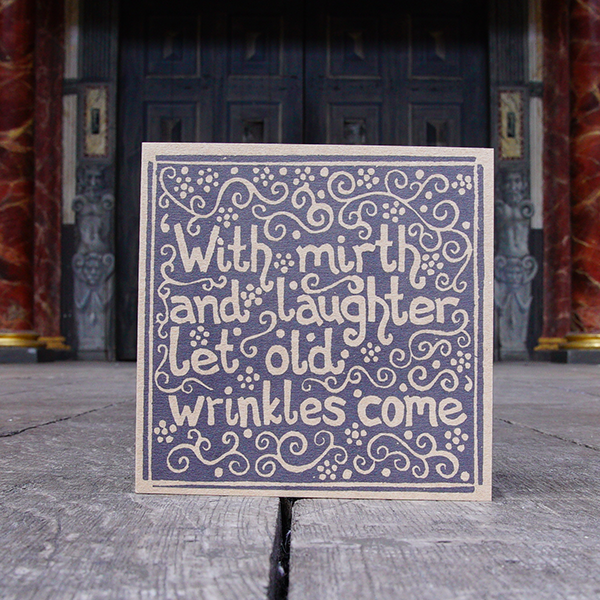 With mirth
and laughter
let old
wrinkles come